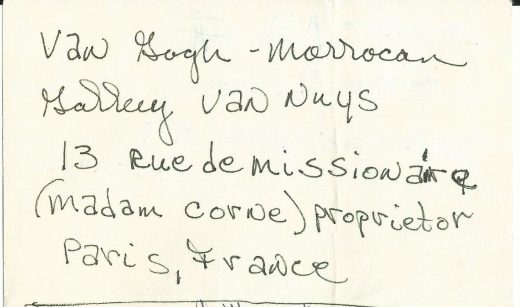 Van Gogh - Morrocan
Gallery Van Nuys
13 Rue de missionaire
(madam corne) proprietor
Paris, France